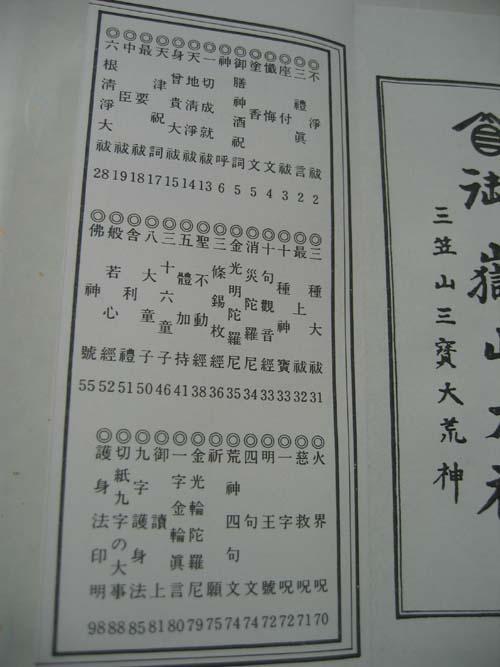 御嶽山
三笠山三寶大荒神
◎不淨祓 2
◎三禮眞言 2
◎座付祓 3
◎懺悔文 4
◎塗香文 5
◎御膳神酒祝詞 5
◎神呼 6
◎一切成就祓 13
◎天地清淨祓 14
◎身曾貴大祓 15
◎天津祝詞 17
◎最要祓 18
◎中臣祓 19
◎六根清淨大祓 28
◎三種大祓 31
◎最上祓 32
◎十種神寶 33
◎十句觀音經 33
◎消災陀羅尼 34
◎金光明陀羅尼 35
◎三條錫杖經 36
◎聖不動經 38
◎五體加持 41
◎三十六童子 46
◎八大童子 50
◎舎利禮 51
◎般若心經 52
◎佛神號 55
◎火界呪 70
◎慈救呪 71
◎一字呪 72
◎明王號 72
◎四句文 74
◎荒神四句文 74
◎祈願 75
◎金光輪陀羅尼 79
◎一字金輪眞言 80
◎御讀上 81
◎九字護身法 85
◎切紙九字の大事 88
◎護身法印明 98